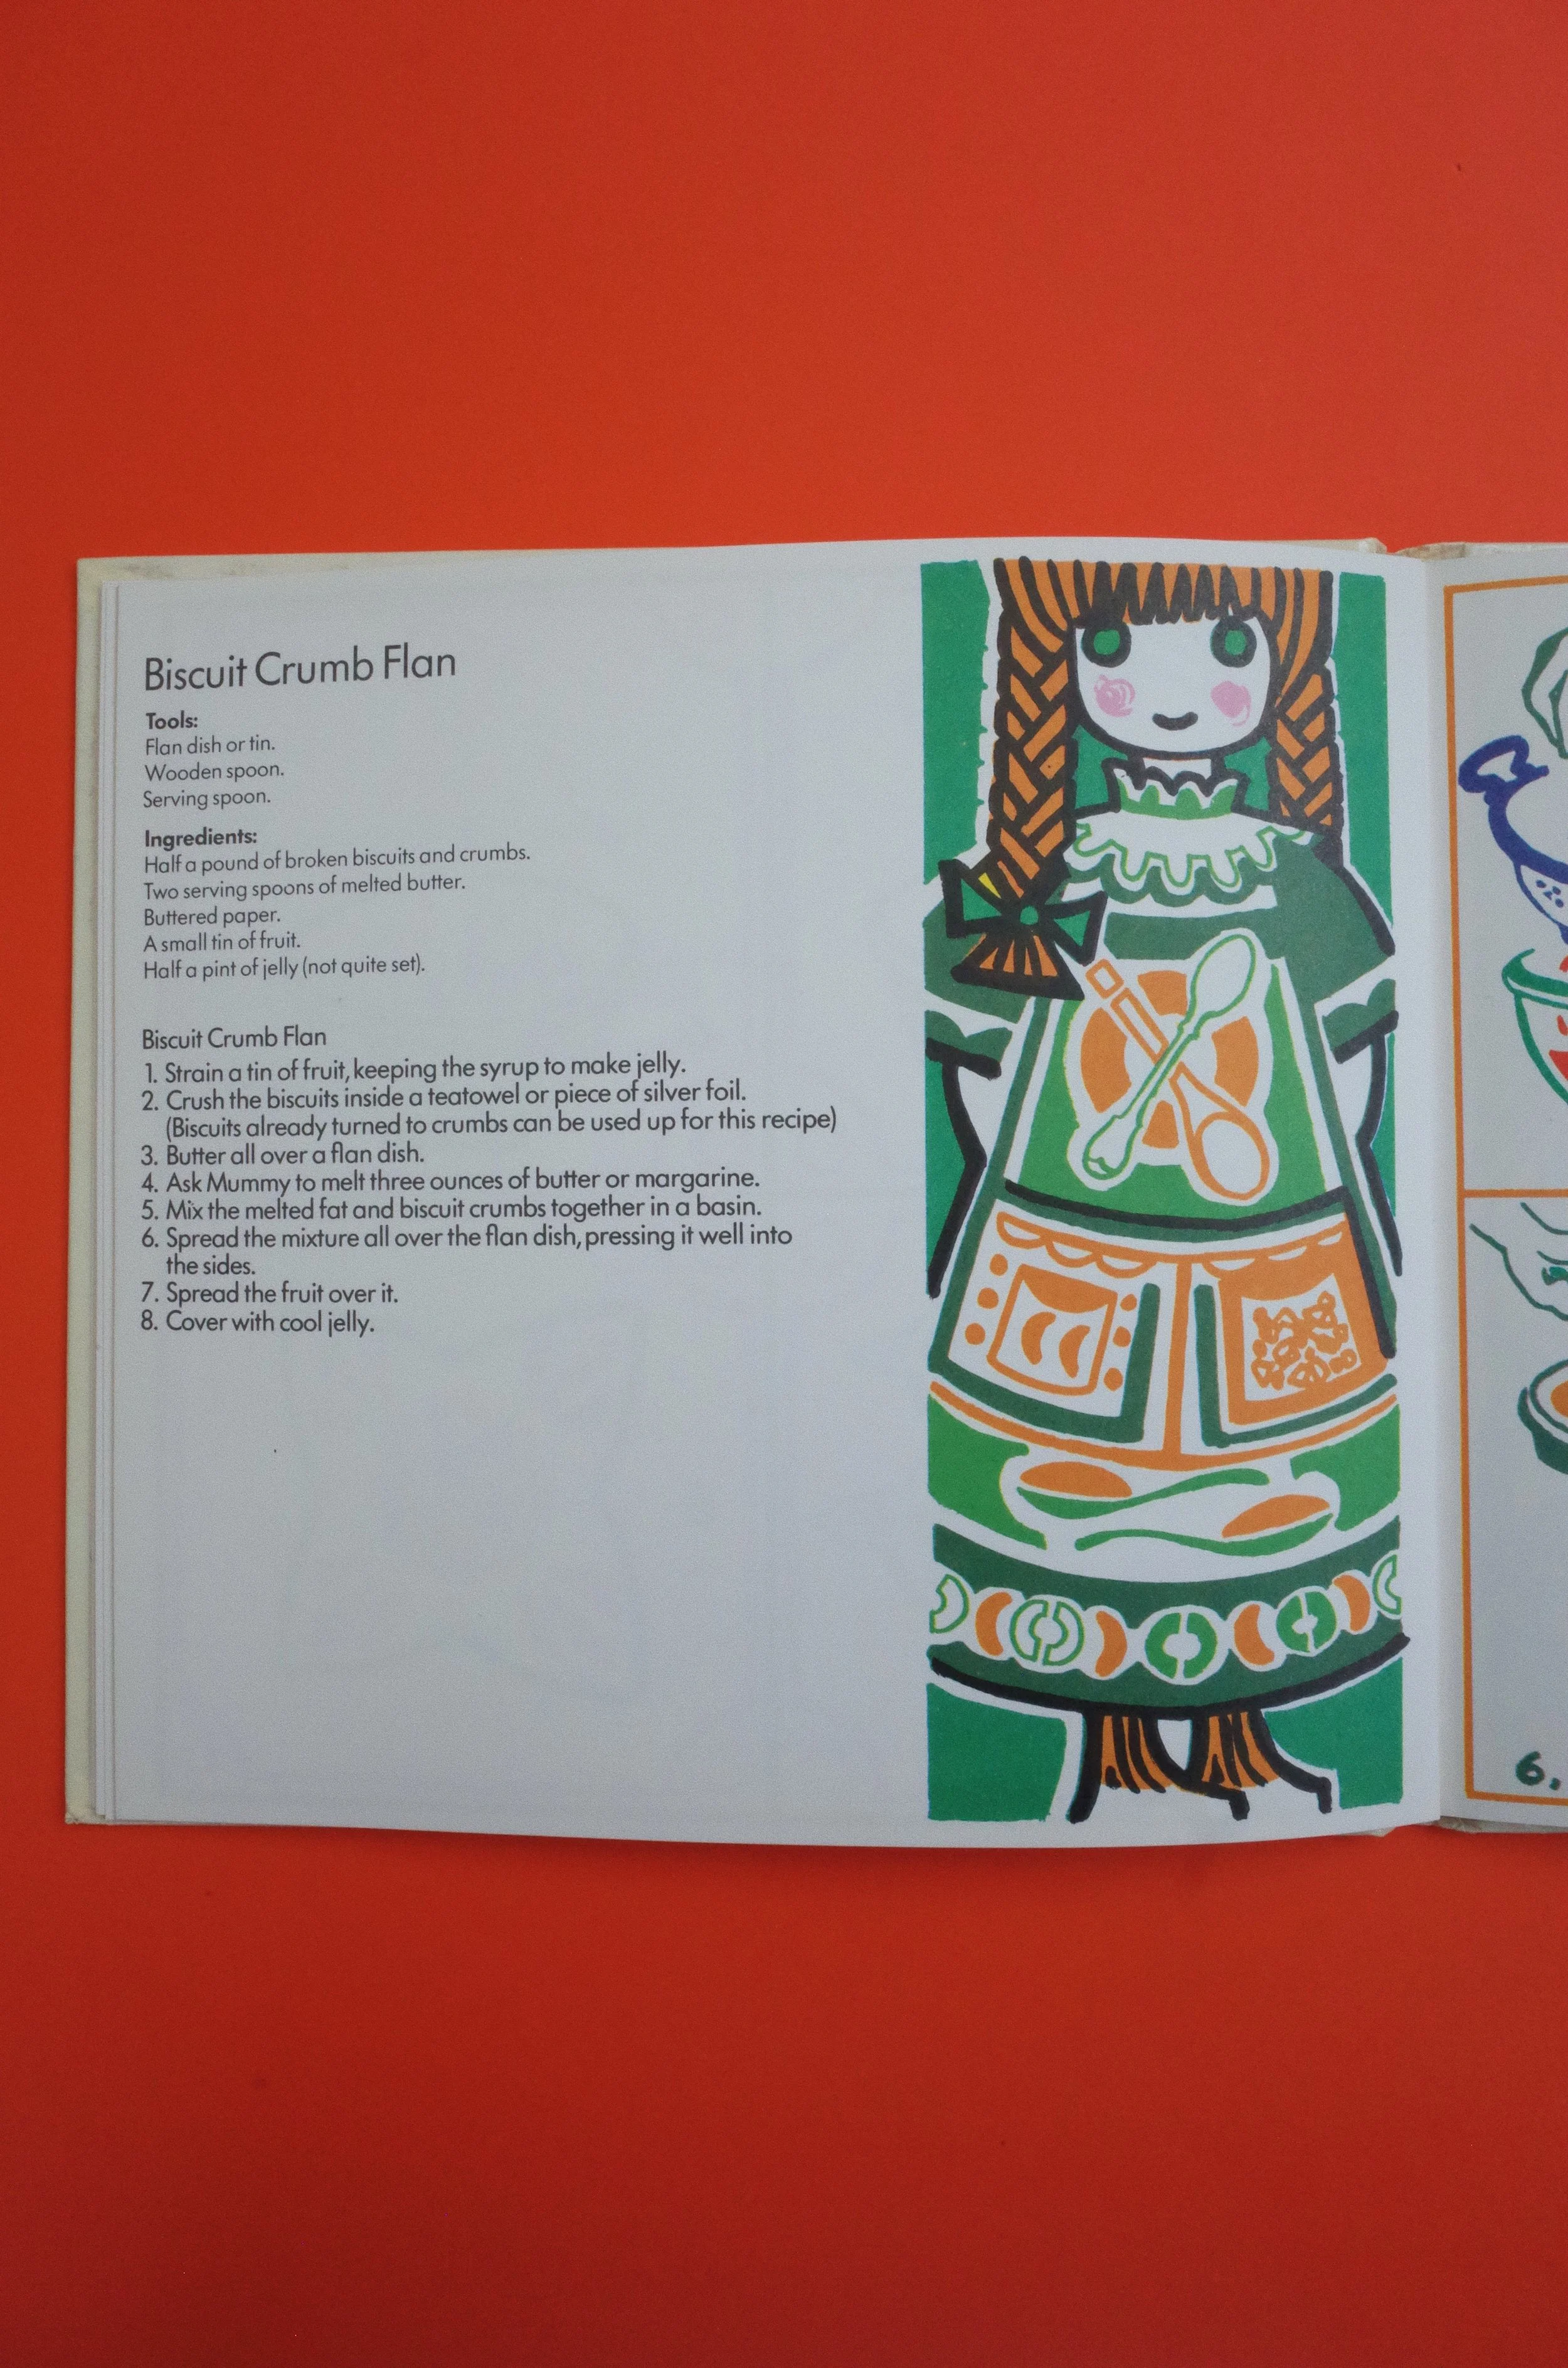 Biscuit Crumb Flan
Tools:
Flan dish or tin.
Wooden spoon.
Serving spoon.
Ingredients:
Half a pound of broken biscuits and crumbs.
Two serving spoons of melted butter.
Buttered paper.
A small tin of fruit.
Half a pint of jelly (not quite set).
Biscuit Crumb Flan
1. Strain a tin of fruit, keeping the syrup to make jelly.
2. Crush the biscuits inside a teatowel or piece of silver foil.
(Biscuits already turned to crumbs can be used up for this recipe)
3. Butter all over a flan dish.
4. Ask Mummy to melt three ounces of butter or margarine.
5. Mix the melted fat and biscuit crumbs together in a basin.
6. Spread the mixture all over the flan dish, pressing it well into
the sides.
7. Spread the fruit over it.
8. Cover with cool jelly.
6.